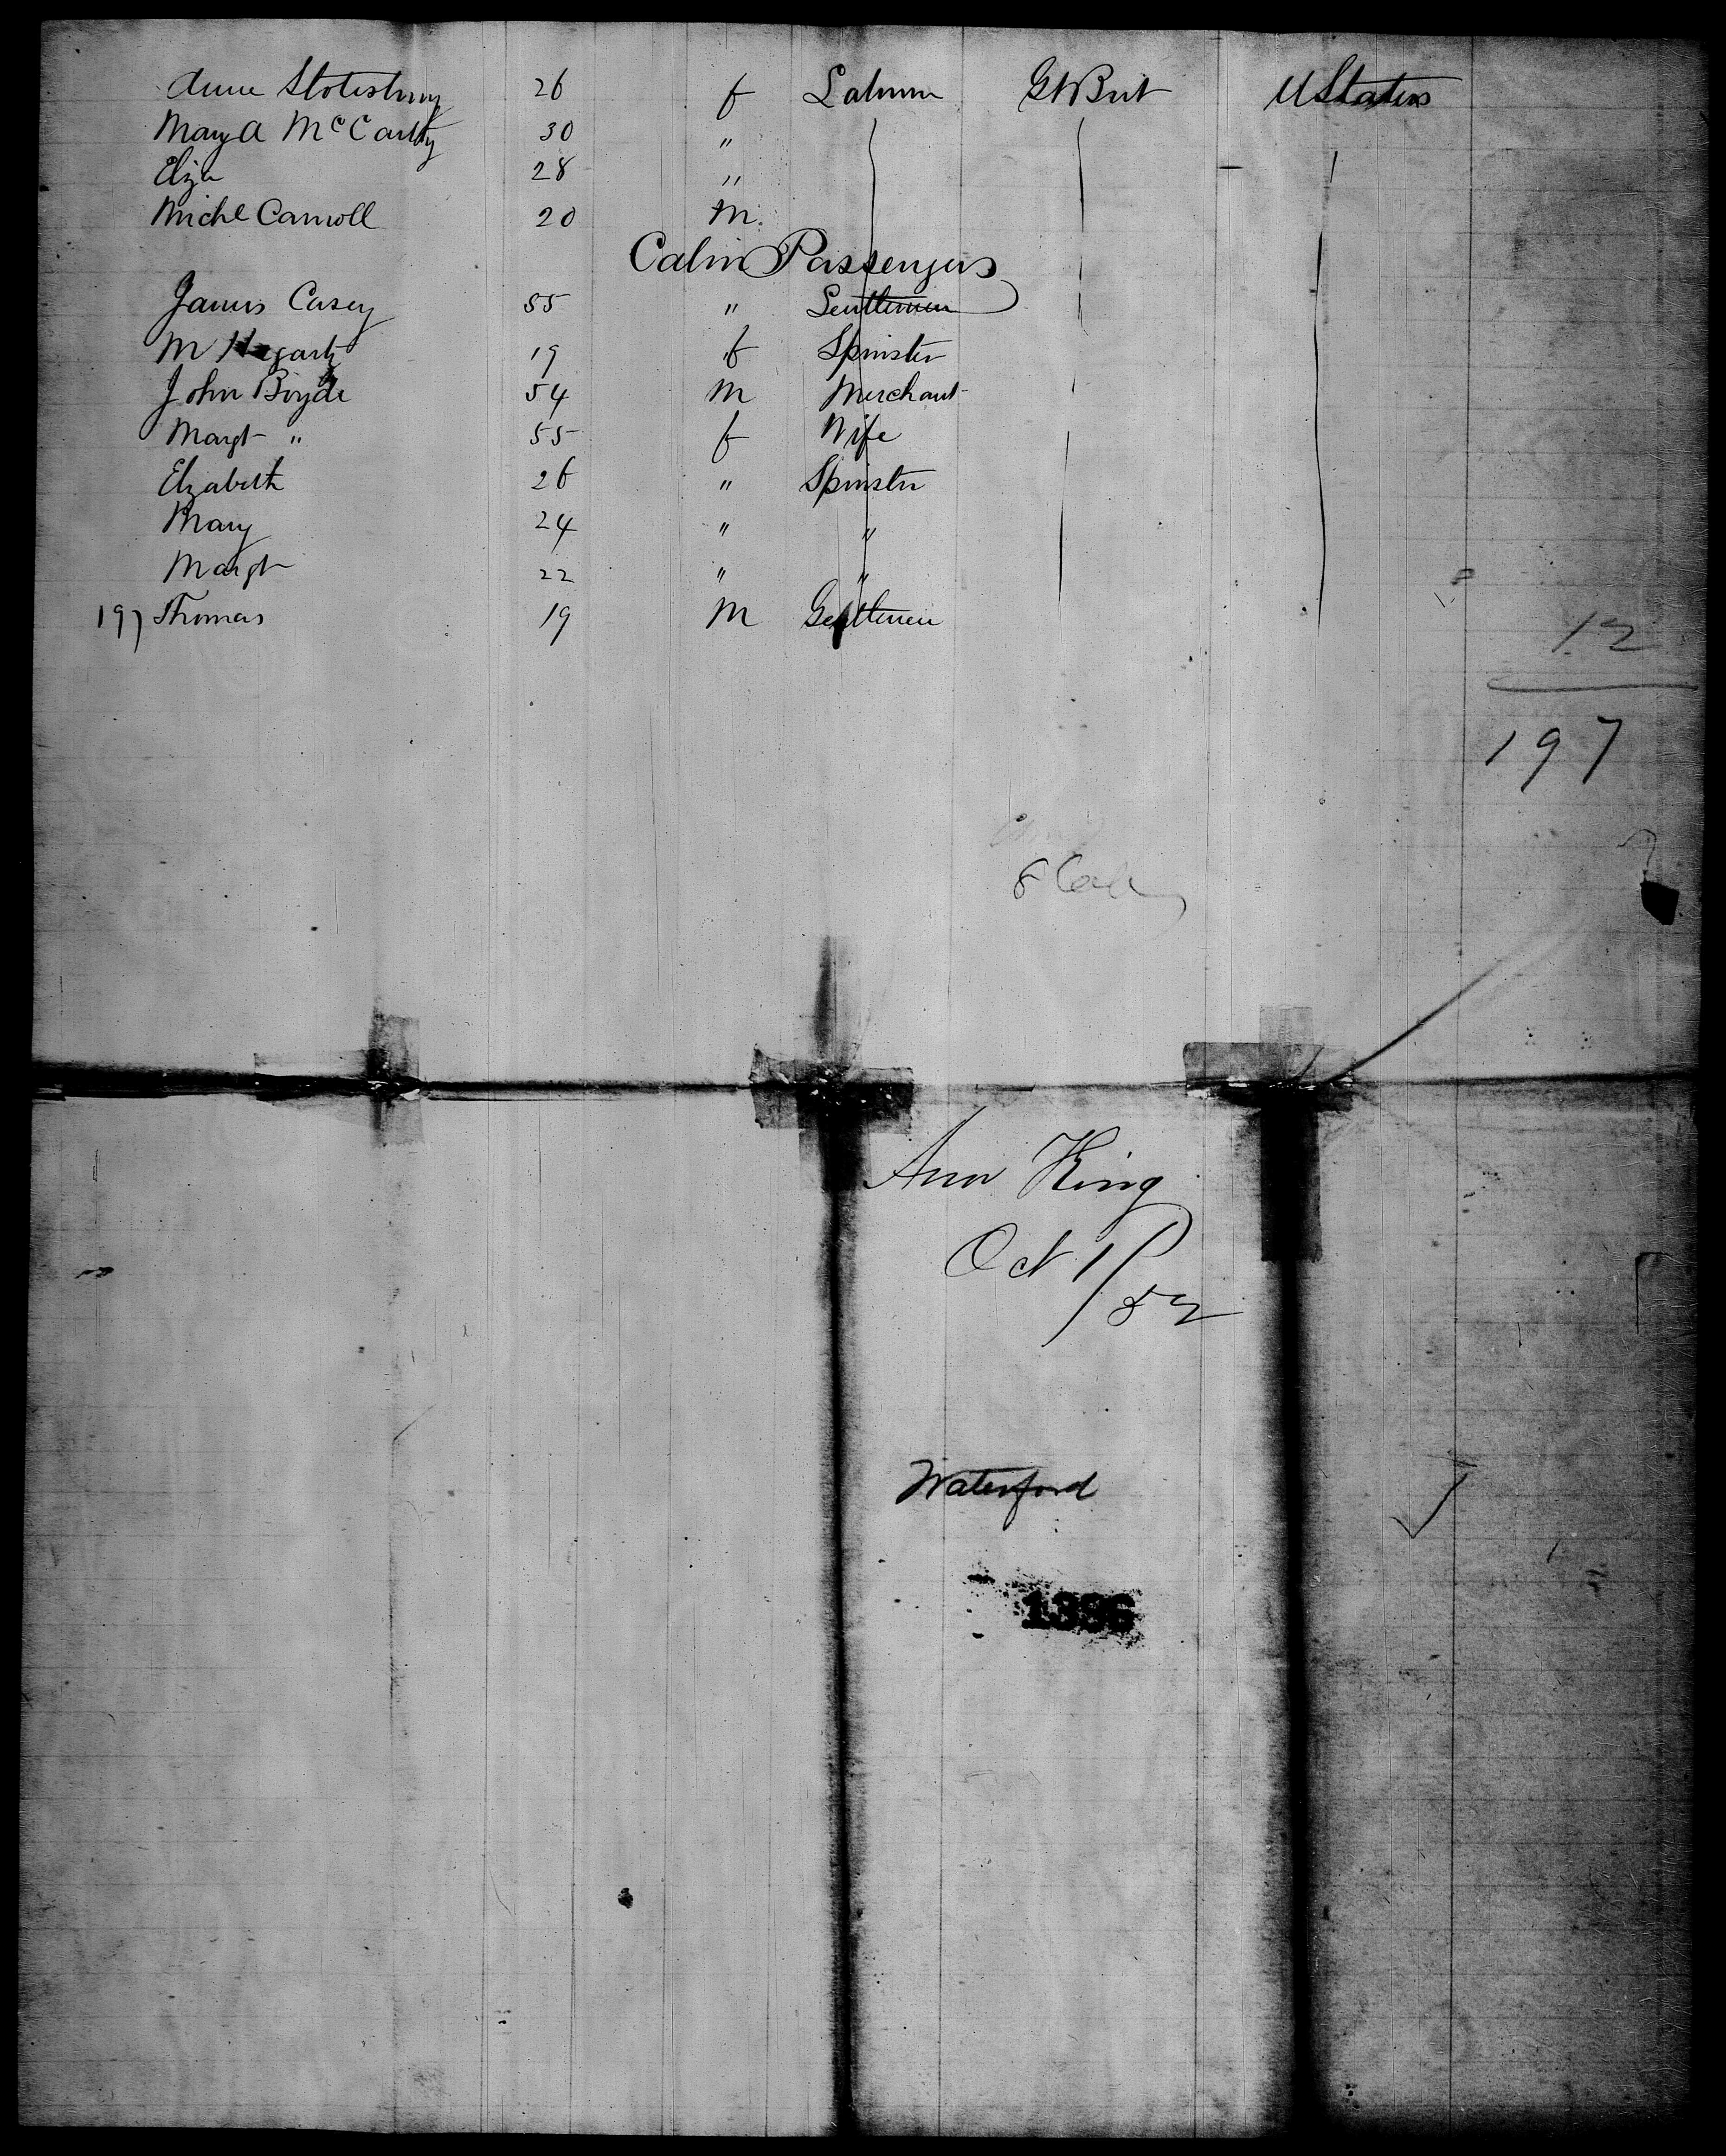 Anne Stotesbury 26 f Labourer Gt Brit U States
Mary A McCarthy 30 "
Eliza 28 "
Michl Carroll 20 M
Cabin Passengers
James Casey 55 " Gentleman
M Hegarty 19 f Spinster
John Boyde 54 M Merchant
Margt " 55 f Wife
Elizabeth 26 " Spinster
Mary 24 " "
Margt 22 " "
197 Thomas 19 M Gentleman
12
197
8 Cab
Ann King
Oct 1/52
Waterford
1396